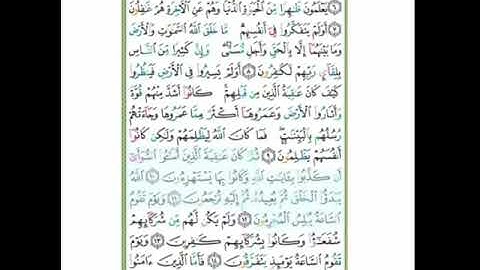 ٦ يَعْلَمُونَ ظَٰهِرًا مِّنَ ٱلْحَيَوٰةِ ٱلدُّنْيَا وَهُمْ عَنِ ٱلْأَخِرَةِ هُمْ غَٰفِلُونَ
٧ أَوَلَمْ يَتَفَكَّرُوا۟ فِىٓ أَنفُسِهِم مَّا خَلَقَ ٱللَّهُ ٱلسَّمَٰوَٰتِ وَٱلْأَرْضَ
وَمَا بَيْنَهُمَآ إِلَّا بِٱلْحَقِّ وَأَجَلٍ مُّسَمًّى وَإِنَّ كَثِيرًا مِّنَ ٱلنَّاسِ
بِلِقَآئِ رَبِّهِمْ لَكَٰفِرُونَ ٨ أَوَلَمْ يَسِيرُوا۟ فِى ٱلْأَرْضِ فَيَنظُرُوا۟
كَيْفَ كَانَ عَٰقِبَةُ ٱلَّذِينَ مِن قَبْلِهِمْ كَانُوٓا۟ أَشَدَّ مِنْهُمْ قُوَّةً
وَأَثَارُوا۟ ٱلْأَرْضَ وَعَمَرُوهَآ أَكْثَرَ مِمَّا عَمَرُوهَا وَجَآءَتْهُمْ
رُسُلُهُم بِٱلْبَيِّنَٰتِ فَمَا كَانَ ٱللَّهُ لِيَظْلِمَهُمْ وَلَٰكِن كَانُوٓا۟
أَنفُسَهُمْ يَظْلِمُونَ ٩ ثُمَّ كَانَ عَٰقِبَةَ ٱلَّذِينَ أَسَٰٓـُٔوا۟ ٱلسُّوٓأَىٰٓ
أَن كَذَّبُوا۟ بِـَٔايَٰتِ ٱللَّهِ وَكَانُوا۟ بِهَا يَسْتَهْزِءُونَ ١٠ ٱللَّهُ
يَبْدَؤُا۟ ٱلْخَلْقَ ثُمَّ يُعِيدُهُۥ ثُمَّ إِلَيْهِ تُرْجَعُونَ ١١ وَيَوْمَ تَقُومُ
ٱلسَّاعَةُ يُبْلِسُ ٱلْمُجْرِمُونَ ١٢ وَلَمْ يَكُن لَّهُم مِّن شُرَكَآئِهِمْ
شُفَعَٰٓؤُا۟ وَكَانُوا۟ بِشُرَكَآئِهِمْ كَٰفِرِينَ ١٣ وَيَوْمَ
تَقُومُ ٱلسَّاعَةُ يَوْمَئِذٍ يَتَفَرَّقُونَ ١٤ فَأَمَّا ٱلَّذِينَ ءَامَنُوا۟